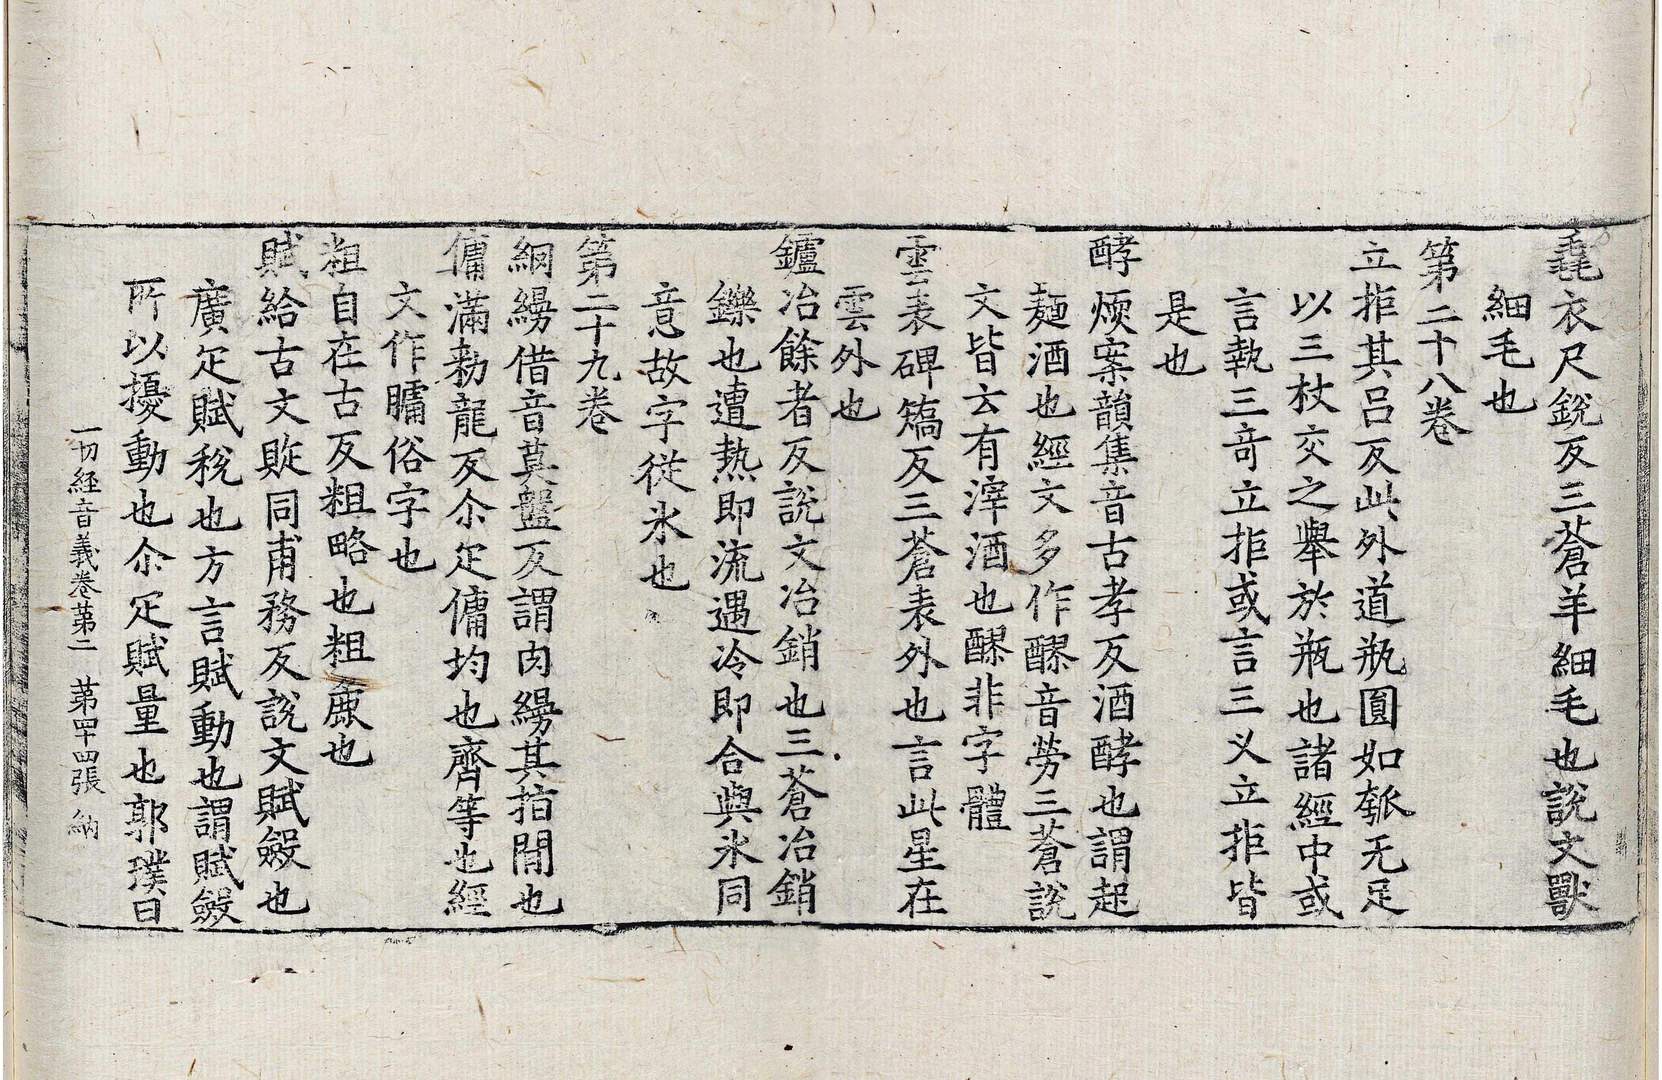 毳衣尺銳反三蒼羊細毛也說文獸
細毛也
第二十八卷
立拒其呂反此外道瓶圓如瓠无足
以三杖交之舉於瓶也諸經中或
言執三奇立拒或言三叉立拒皆
是也
酵煗案韻集音古孝反酒酵也謂起
麵酒也經文多作醪音勞三蒼說
文皆云有滓酒也醪非字體
雲表碑矯反三蒼表外也言此星在
雲外也
鑪冶餘者反說文冶銷也三蒼冶銷
鑠也遭熱即流遇冷即合與氷同
意故字從氷也
第二十九卷
網縵借音莫盤反謂肉縵其指間也
傭滿勑龍反尒疋傭均也齊等也經
文作𦟛俗字也
粗自在古反粗略也粗麁也
賦給古文䟼同甫務反說文賦斂也
廣疋賦稅也方言賦動也謂賦斂
所以擾動也尒疋賦量也郭璞曰
一切經音義卷苐二 苐四十四張 納